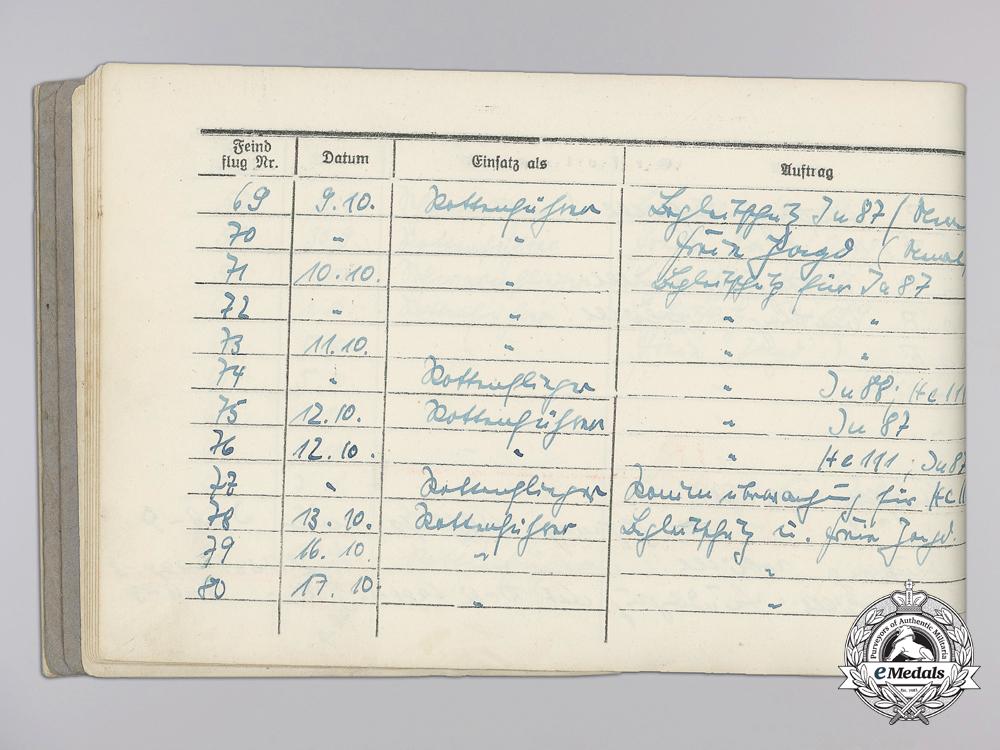 Feind flug Nr. Datum Einsatz als Auftrag
69 9.10. Rottenführer Begleitschutz Ju 87 (
70 " " freie Jagd (
71 10.10. " Begleitschutz für Ju 87
72 " " " "
73 11.10. " " "
74 " Rottenflieger " Ju 88; He 111
75 12.10. Rottenführer " Ju 87
76 12.10. " " He 111; Ju 87
77 " Rottenflieger Raumüberwachung für He 11
78 13.10. Rottenführer Begleitschutz u. freie Jagd.
79 16.10. " "
80 17.10 " "
Purveyors of Authentic Militaria
eMedals
Est. 1983